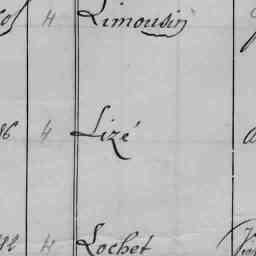 4 Limousin
86 4 Lizé
4 Lochet